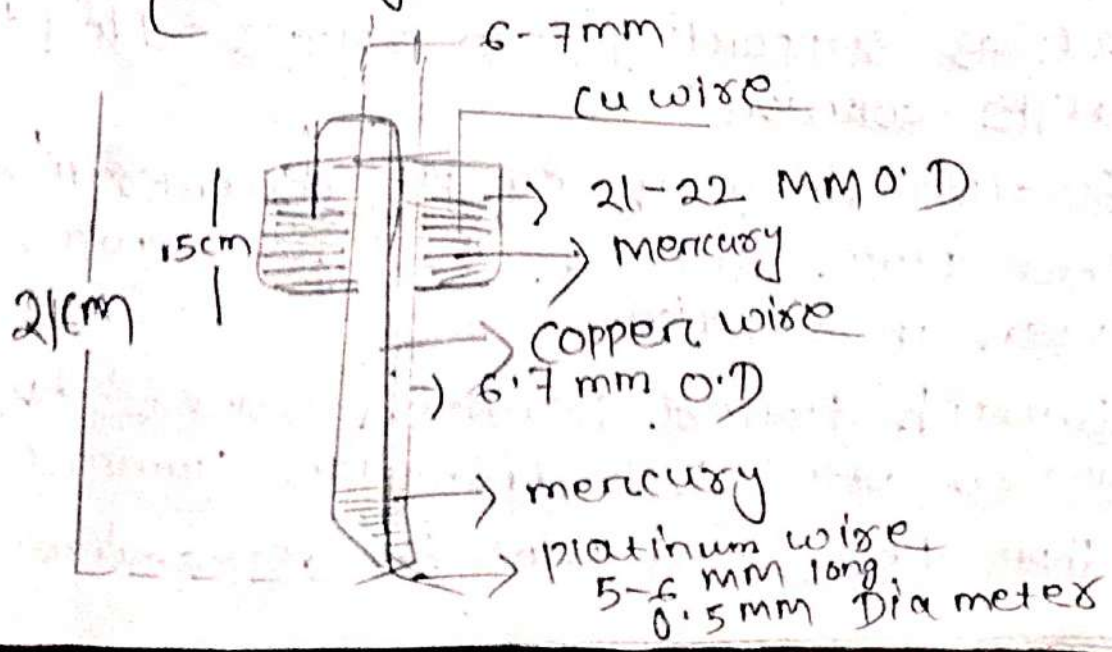 6-7mm
cu wire
21-22 MM O.D
mercury
.5cm
21cm
copper wire
6.7 mm O.D
mercury
platinum wire
5-6 mm long
0.5mm Diameter